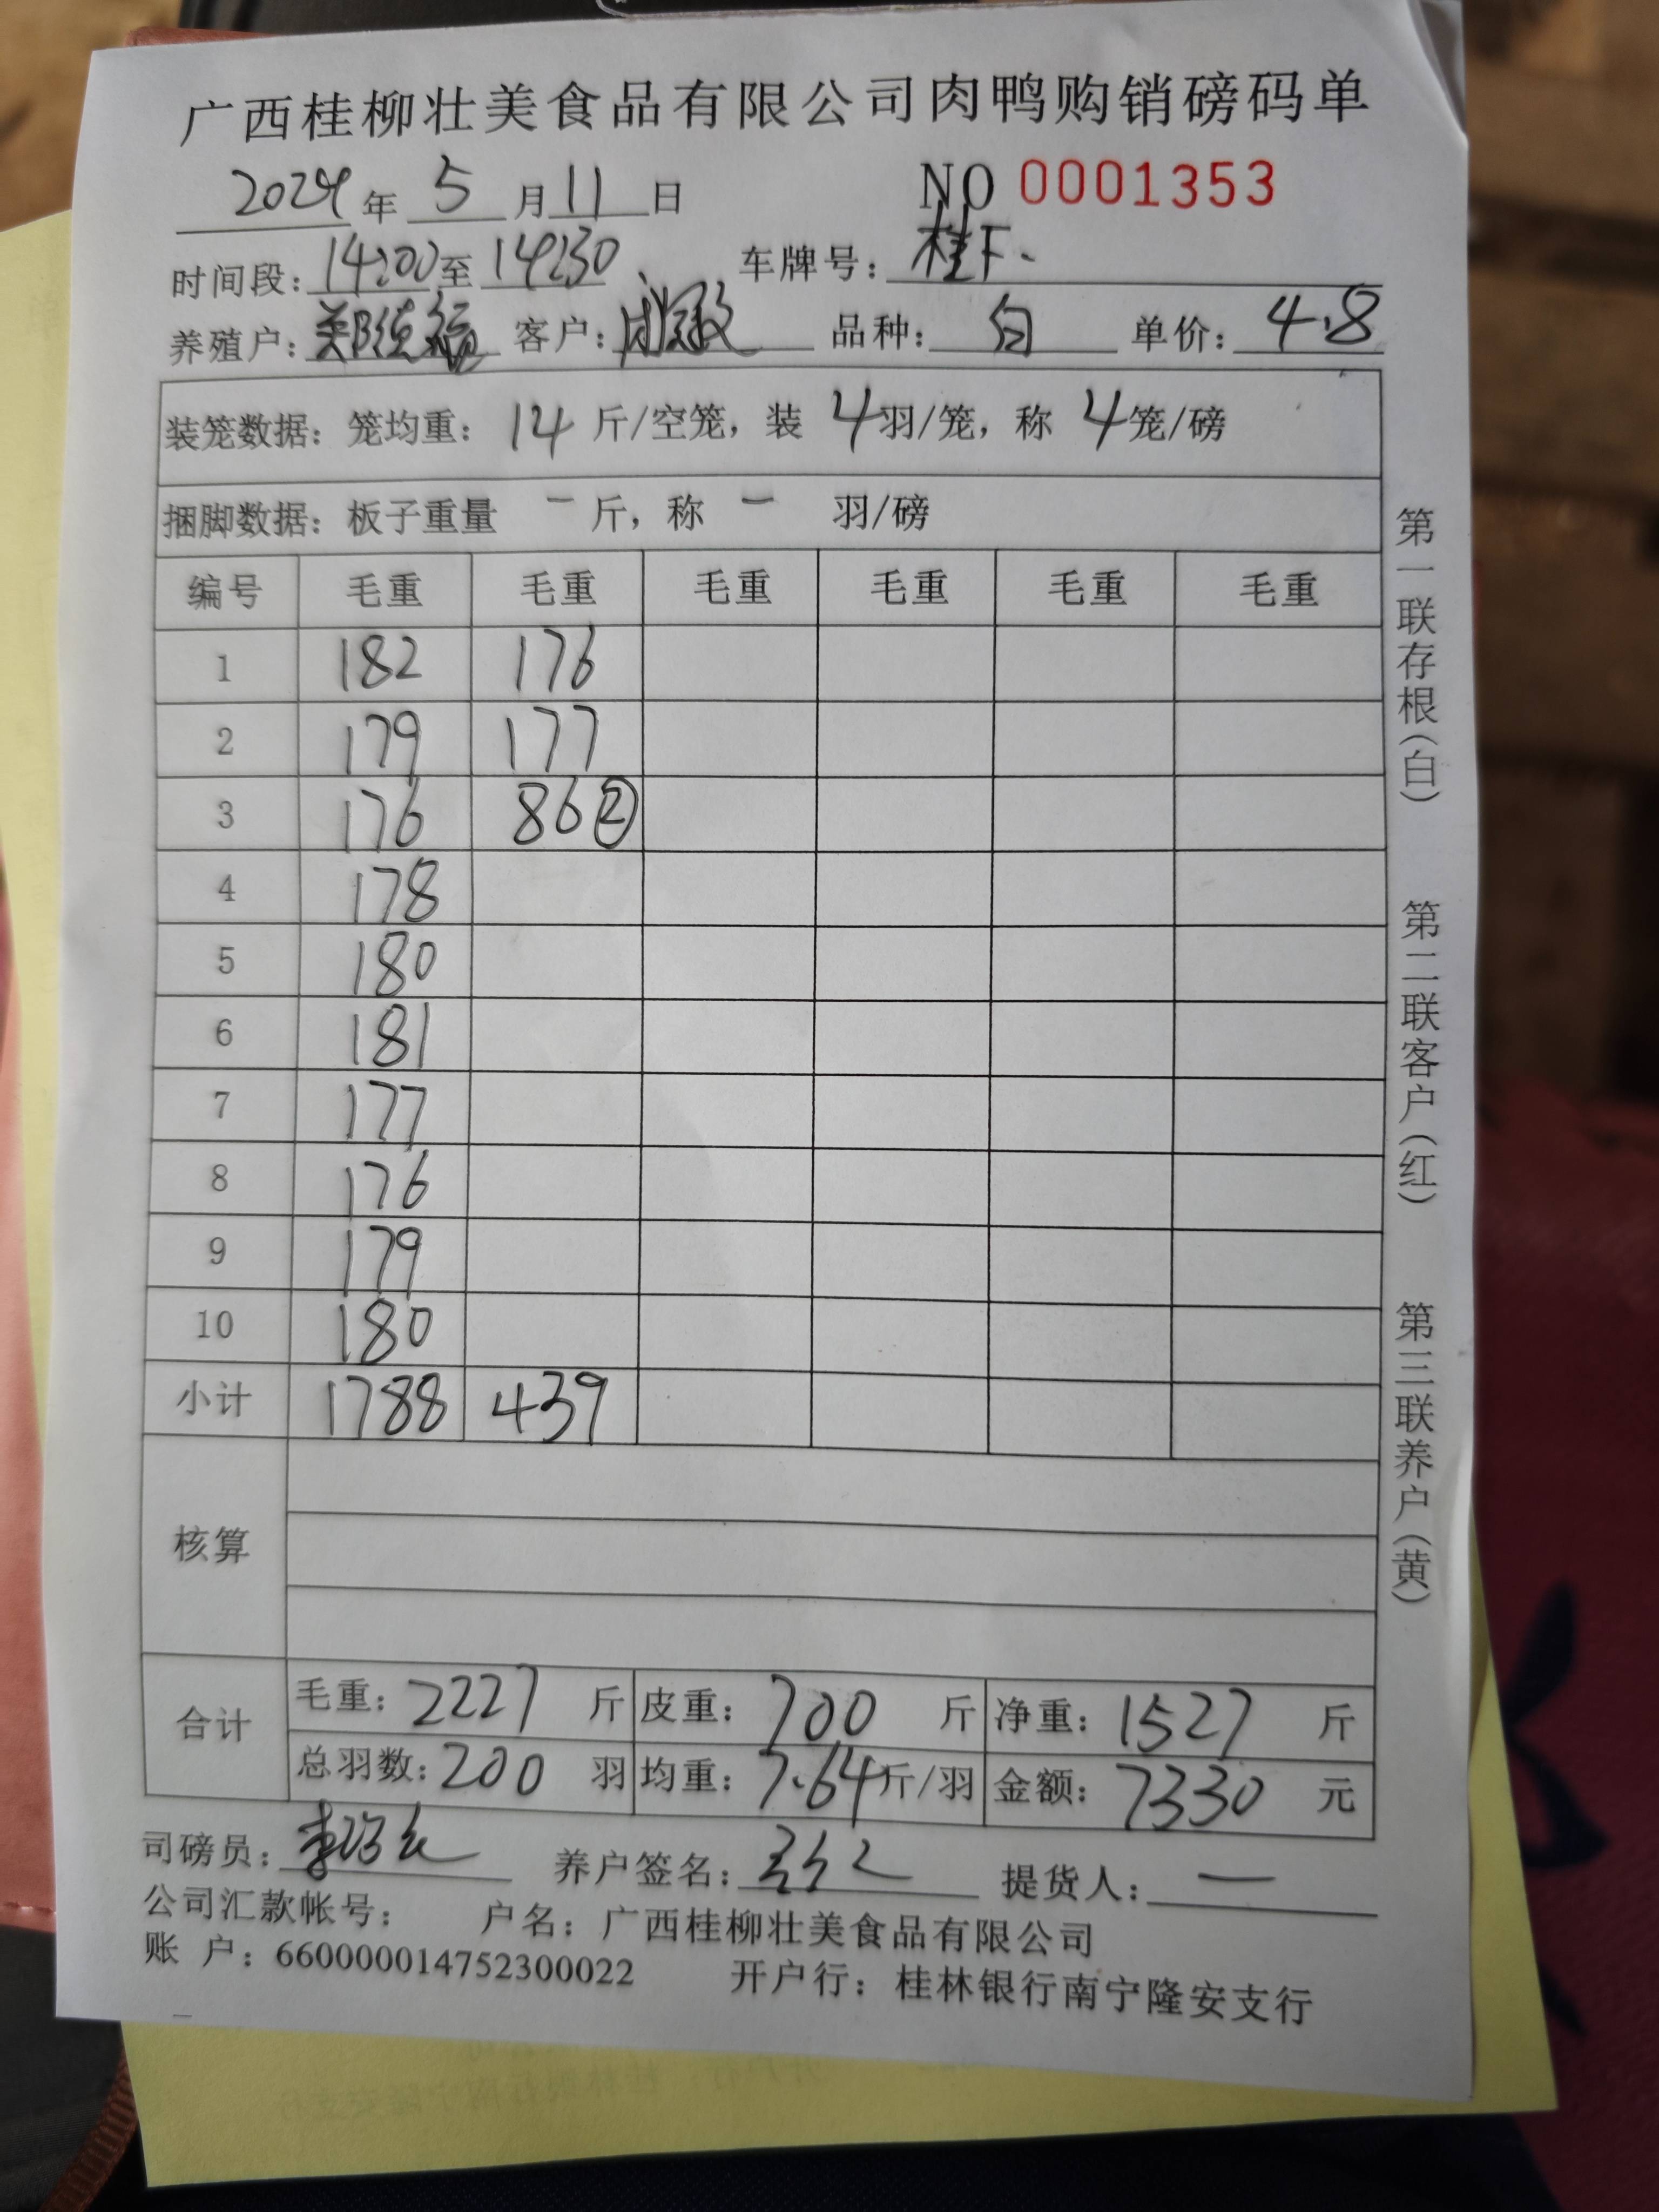 广西桂柳壮美食品有限公司肉鸭购销磅码单
2024年 5 月 11 日 NO 0001353
时间段：14:00 至 14:30 车牌号：桂F
养殖户：郑德福 客户： 品种：白 单价：4.8
装笼数据：笼均重：14 斤/空笼，装 4 羽/笼，称 4 笼/磅
捆脚数据：板子重量 一 斤，称 一 羽/磅
编号 毛重 毛重 毛重 毛重 毛重 毛重
1 182 176
2 179 177
3 176 86②
4 178
5 180
6 181
7 177
8 176
9 179
10 180
小计 1788 439
核算
合计 毛重：2227 斤 皮重：700 斤 净重：1527 斤
总羽数：200 羽 均重：7.64 斤/羽 金额：7330 元
司磅员： 养户签名： 提货人：一
公司汇款帐号： 户名：广西桂柳壮美食品有限公司
账 户：660000014752300022 开户行：桂林银行南宁隆安支行
第一联存根（白） 第二联客户（红） 第三联养户（黄）